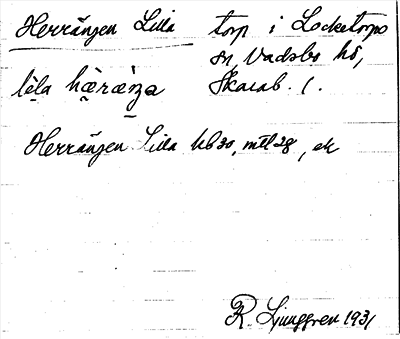 Herrängen Lilla torp i Locketorps
sn, Vadsbo hd,
lìla hæ̀ræ̀ŋa Skarab. l.
Herrängen Lilla hb 30, mtl 28, ek
R. Ljunggren 1931